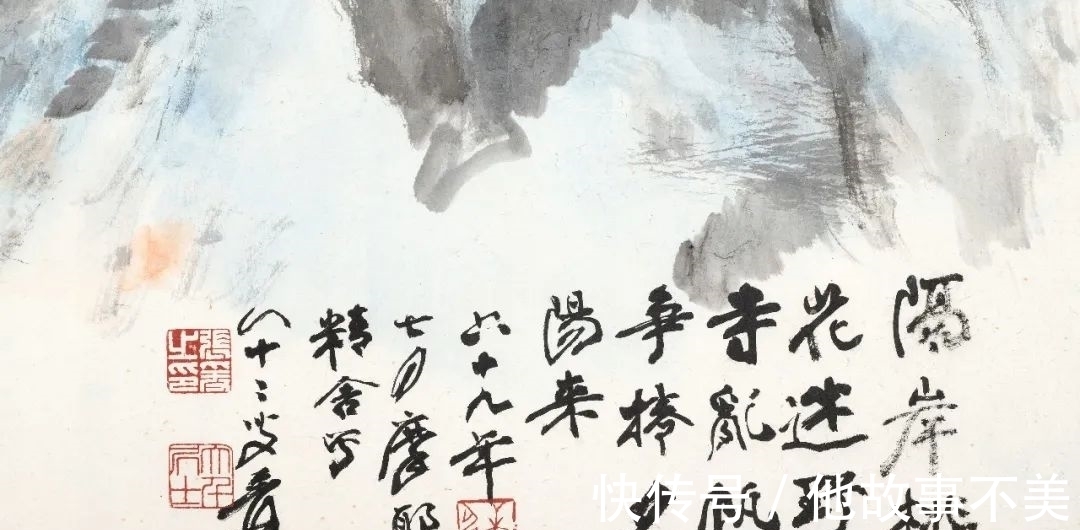 隔岸
花迷
寺亂
争捧
陽来
六十九年
七月摩耶
精舍写
八十二叟爰
張爰之印
大千居士
快传号 / 他故事不美